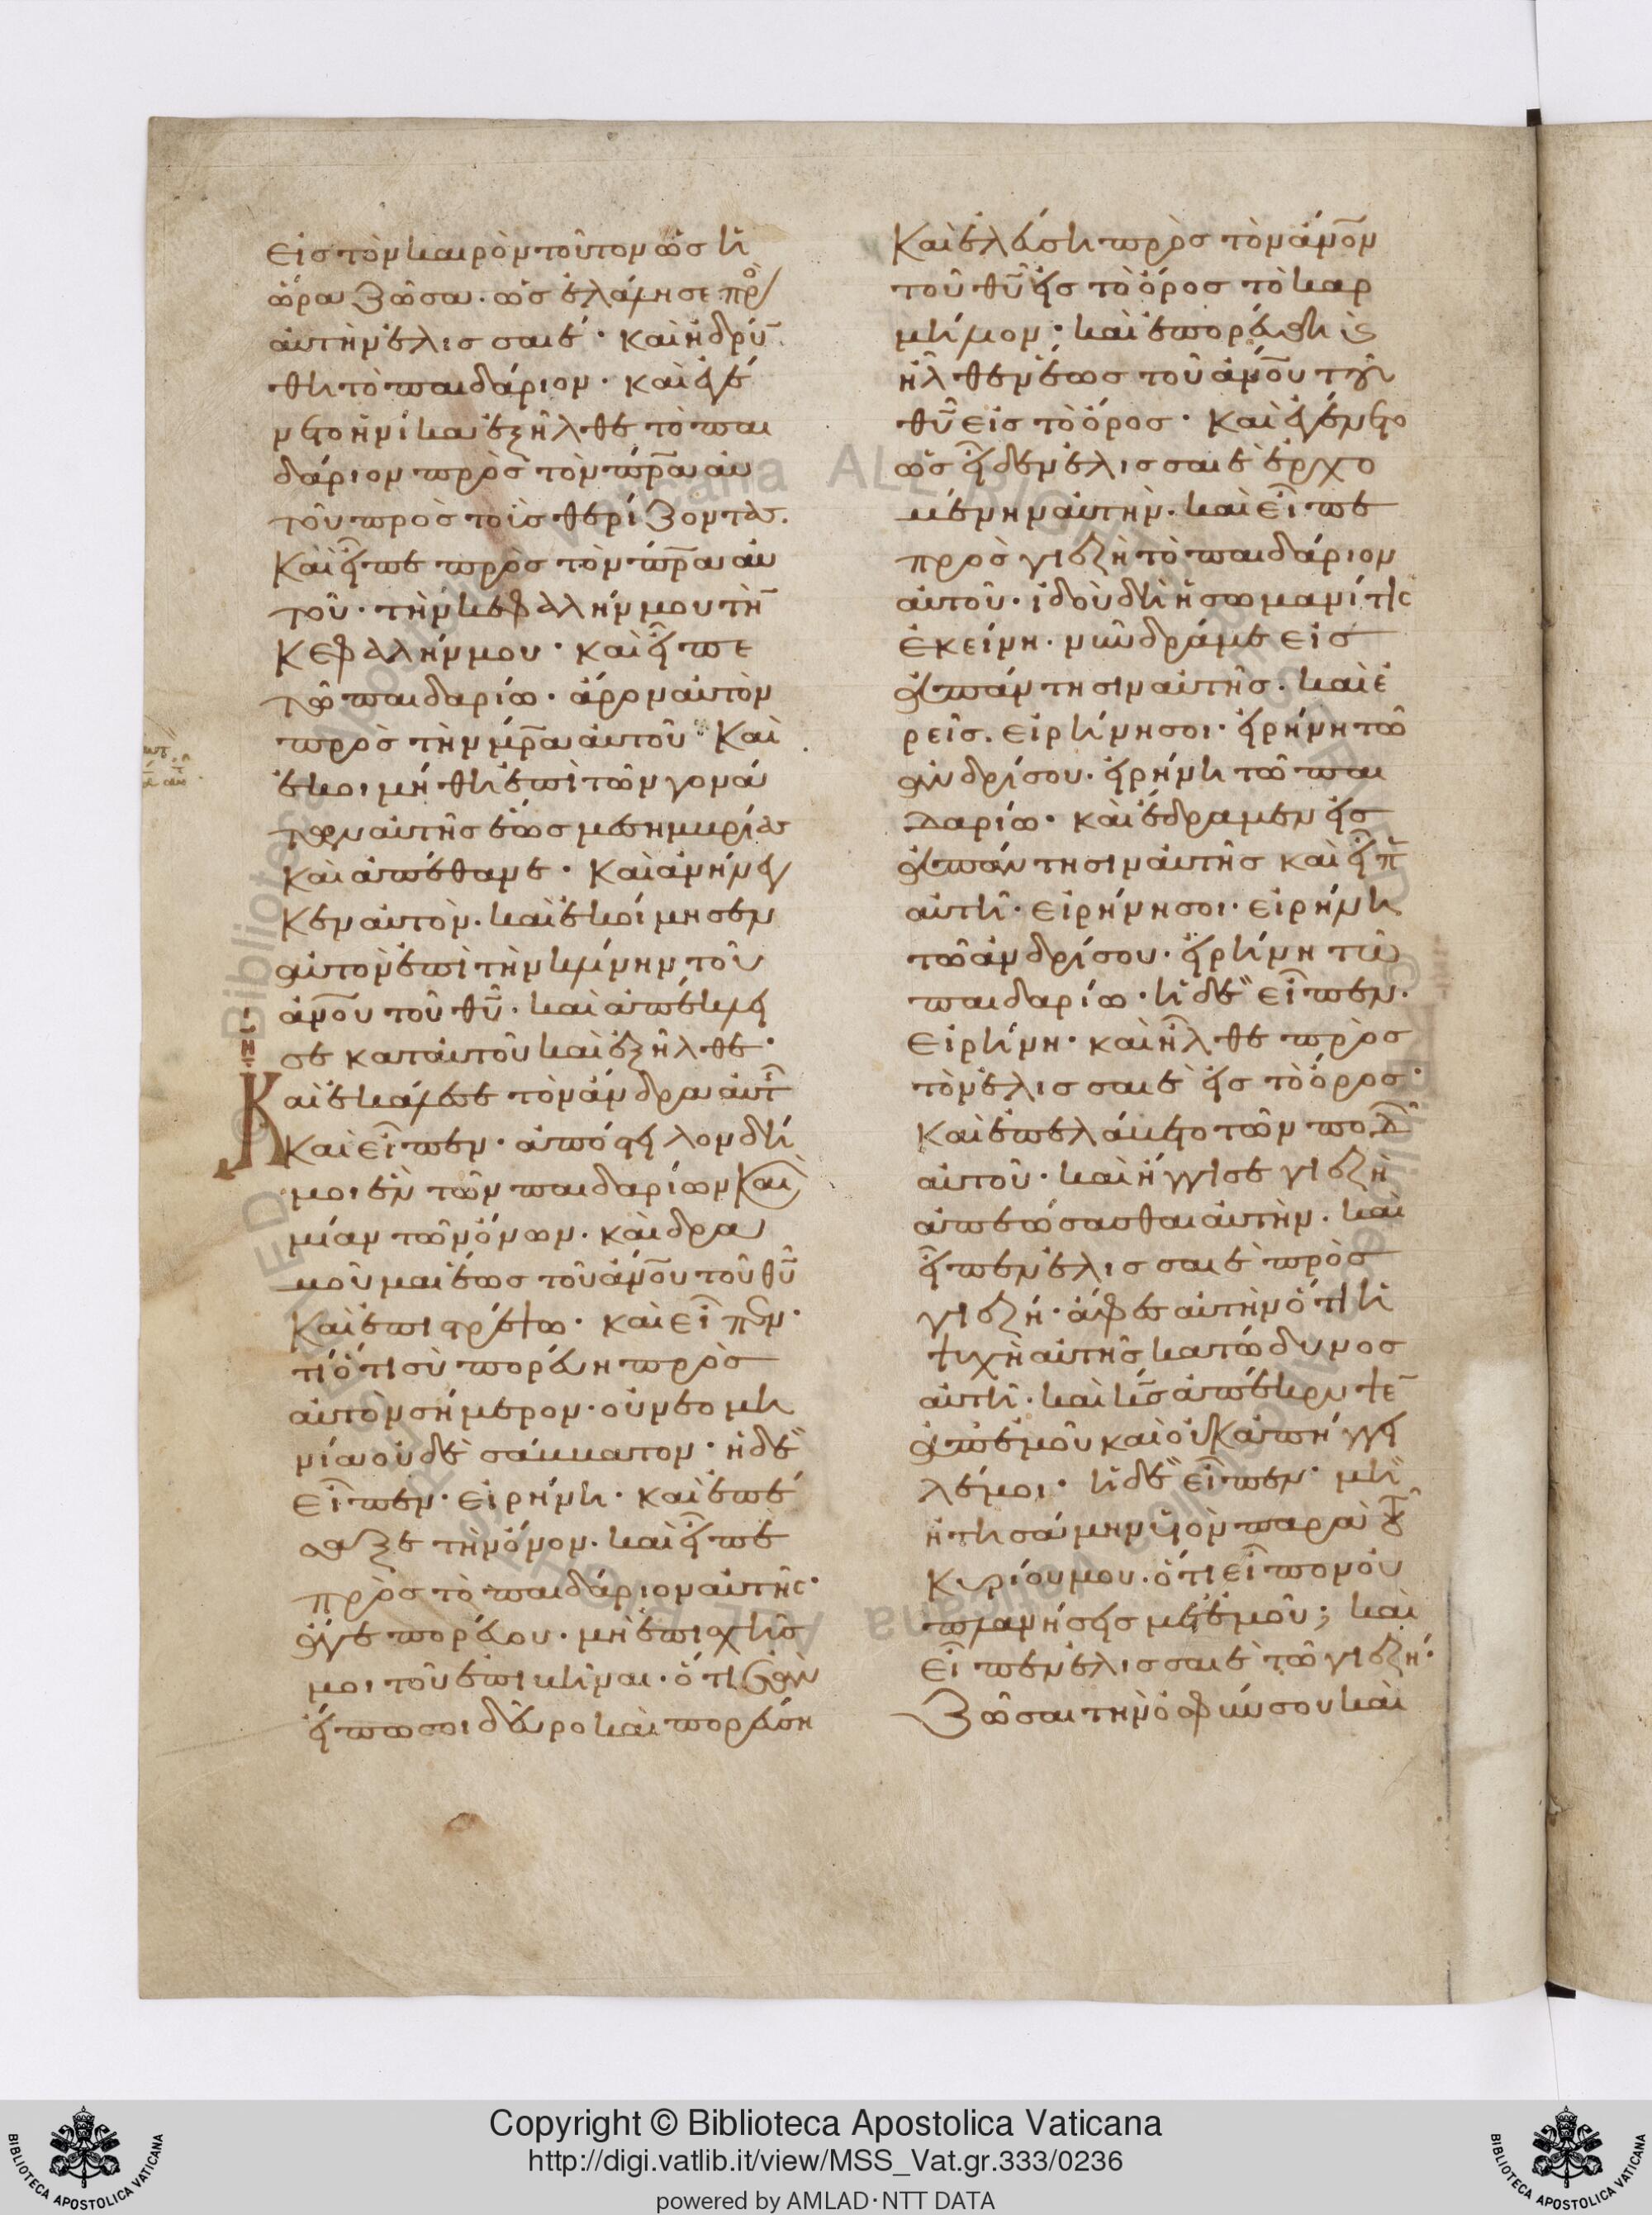 εἰς τὸν καιρὸν τοῦτον ὡς ἡ
ὥρα ζῶσα. ὡς ἐλάλησε πρὸς
αὐτὴν ἐλισσαιέ. καὶ ἡδρύν
θη τὸ παιδάριον. καὶ ἐγέ
νετο ἡνίκα ἐξῆλθε τὸ παι
δάριον πρὸς τὸν πρ̅α αὐ
τοῦ πρὸς τοὺς θερίζοντας.
Καὶ εἶπε πρὸς τὸν πρ̅α αὐ
τοῦ. τὴν κεφαλήν μου τὴν
κεφαλήν μου. καὶ εἶπε
τῶ παιδαρίω. ἆρον αὐτὸν
πρὸς τὴν μρ̅α αὐτοῦ. Καὶ
ἐκοιμήθη ἐπὶ τῶν γονά
των αὐτῆς ἕως μεσημβρίας
καὶ ἀπέθανε. Καὶ ἀνήνεγ
κεν αὐτόν. καὶ ἐκοίμησεν
αὐτὸν ἐπὶ τὴν κλίνην τοῦ
ἀνο̅υ τοῦ θυ̅. καὶ ἀπέκλει
σε κατ αὐτοῦ καὶ ἐξῆλθε.
Καὶ ἐκάλεσε τὸν ἄνδρα αὐτῆς
καὶ εἶπεν. ἀπόστειλον δή
μοι ἓν τῶν παιδαρίων καὶ
μίαν τῶν ὄνων. καὶ δρα
μοῦμαι ἕως τοῦ ἀνο̅υ τοῦ θυ̅
καὶ ἐπιστρέψω. καὶ εἶπεν.
τί ὅτι σὺ πορεύη πρὸς
αὐτὸν σήμερον. οὐ νεομη
νία οὐδὲ σάββατον. ἡ δὲ
εἶπεν. εἰρήνη. καὶ ἐπέ
σαξε τὴν ὄνον. καὶ εἶπε
πρὸς τὸ παιδάριον αὐτῆς.
ἄγε πορεύου. μὴ ἐπισχῆς
μοι τοῦ ἐπικῆναι. ὅτι ἐὰν
εἴπω σοι δεῦρο καὶ πορεύση
Καὶ ἐλεύση πρὸς τὸν ἀνο̅ν
τοῦ θυ̅ εἰς τὸ ὄρος τὸ καρ
μήλιον. καὶ ἐπορεύθη καὶ
ἦλθεν ἕως τοῦ ἀνο̅υ τοῦ
θυ̅ εἰς τὸ ὄρος. καὶ ἐγένετο
ὡς εἶδεν ἐλισσαιὲ ἐρχο
μένην αὐτήν. καὶ εἶπε
πρὸς γιεζὴ τὸ παιδάριον
αὐτοῦ. ἰδοὺ δὴ ἡ σωμανίτις
ἐκείνη. νῦν δράμε εἰς
ἀπάντησιν αὐτῆς. καὶ ἐ
ρεῖς. εἰρήνη σοι. εἰρήνη τῶ
ἀνδρί σου. εἰρήνη τῶ παι
δαρίω. καὶ ἔδραμεν εἰς
ἀπάντησιν αὐτῆς καὶ εἶπεν
αὐτῆ. εἰρήνη σοι. εἰρήνη
τῶ ἀνδρί σου. εἰρήνη τῶ
παιδαρίω. ἡ δὲ εἶπεν.
εἰρήνη. καὶ ἦλθε πρὸς
τὸν ἐλισσαιὲ εἰς τὸ ὄρος.
Καὶ ἐπελάβετο τῶν ποδῶν
αὐτοῦ. καὶ ἤγγισε γιεζὴ
ἀπεώσασθαι αὐτήν. καὶ
εἶπεν ἐλισσαιὲ πρὸς
γιεζή. ἄφες αὐτὴν ὅτι ἡ
ψυχὴ αὐτῆς κατώδυνος
αὐτῆ. καὶ κς̅ ἀπέκρυψεν
ἀπ ἐμοῦ καὶ οὐκ ἀπήγγει
λέ μοι. ἡ δὲ εἶπεν. μὴ
ἠτησάμην υἱὸν παρὰ τοῦ
κυρίου μου. ὅτι εἶπον οὐ
πλανήσεις μετ ἐμοῦ; καὶ
εἶπεν ἐλισσαιὲ τῶ γιεζή.
Ζῶσαι τὴν ὀσφύν σου καὶ
Copyright © Biblioteca Apostolica Vaticana
http://digi.vatlib.it/view/MSS_Vat.gr.333/0236
powered by AMLAD·NTT DATA
BIBLIOTECA APOSTOLICA VATICANA
BIBLIOTECA APOSTOLICA VATICANA